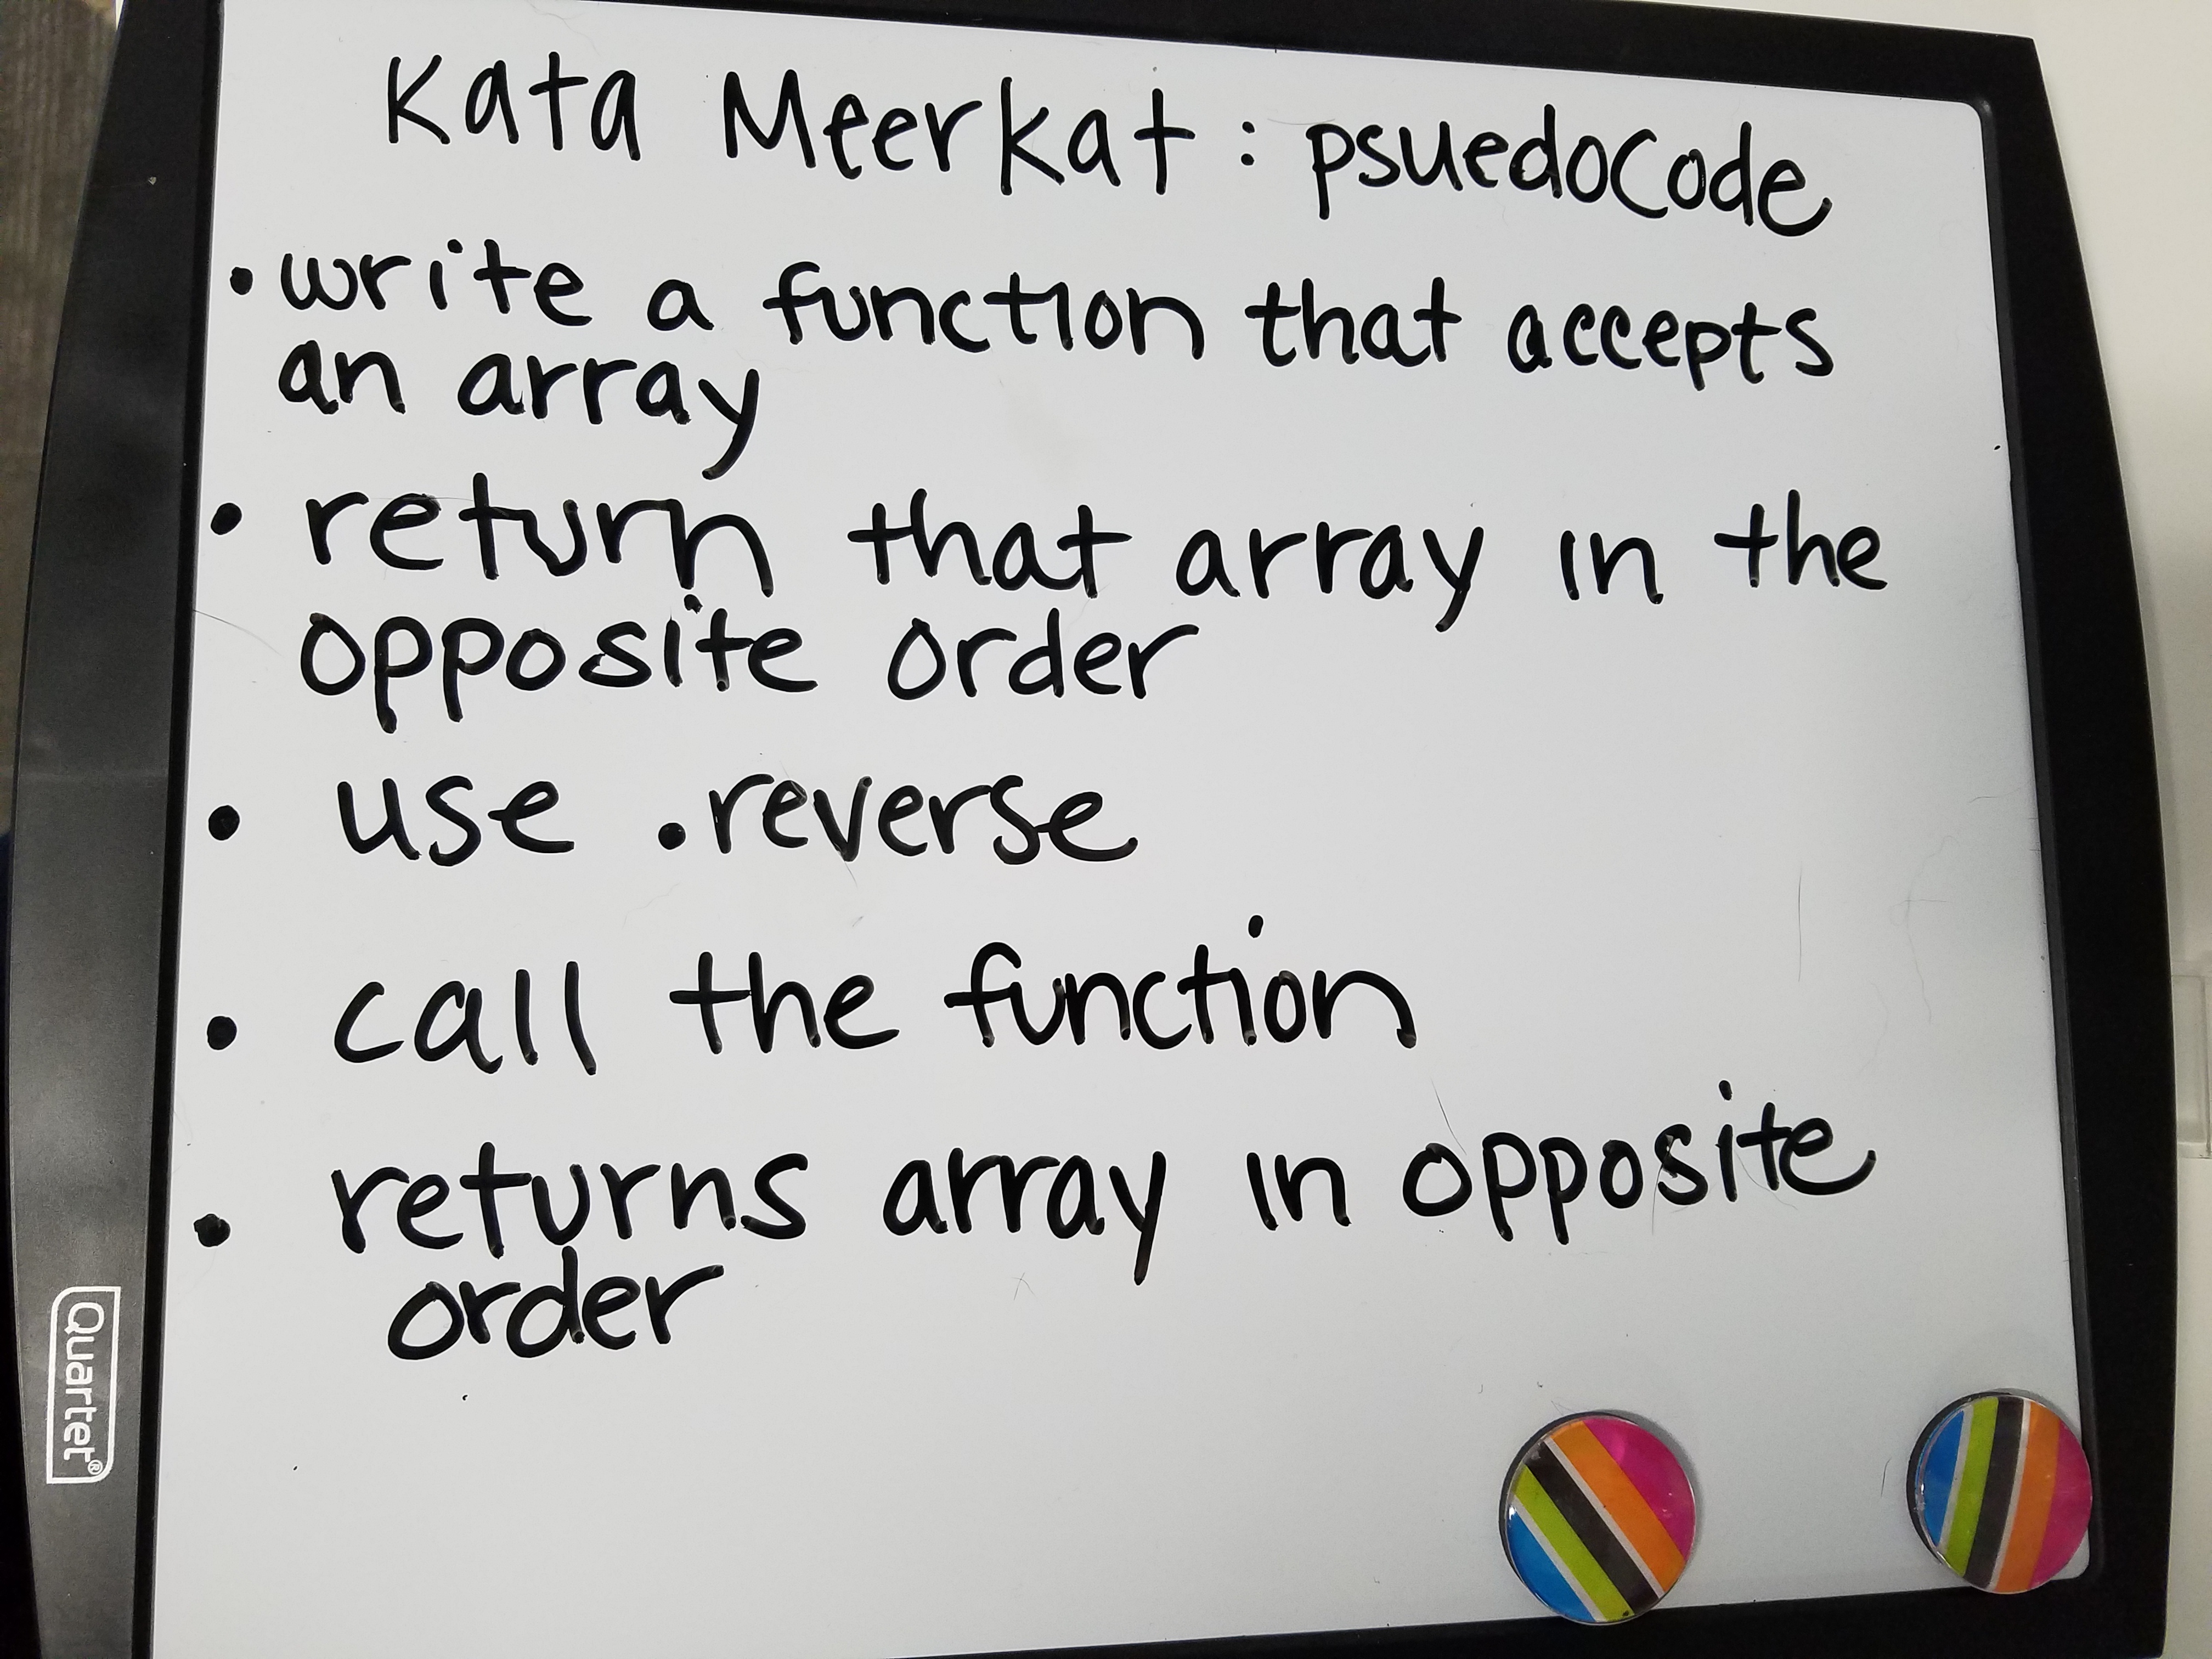 Kata Meerkat: psuedocode
• write a function that accepts
an array
• return that array in the
opposite order
• use .reverse
• call the function
• returns array in opposite
order
Quartet®